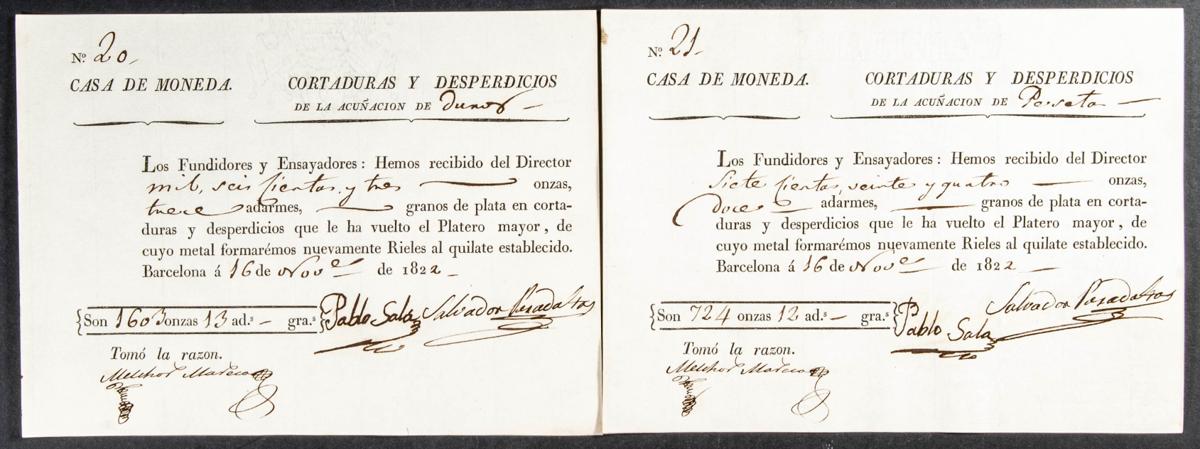 Nº 20
CASA DE MONEDA. CORTADURAS Y DESPERDICIOS
DE LA ACUÑACION DE Duros
Los Fundidores y Ensayadores: Hemos recibido del Director
mil, seis cientas, y tres onzas,
trece adarmes, granos de plata en corta-
duras y desperdicios que le ha vuelto el Platero mayor, de
cuyo metal formarémos nuevamente Rieles al quilate establecido.
Barcelona á 16 de Nov.e de 1822
Son 1603 onzas 13 ad.s gra.s Pablo Sala Salvador
Tomó la razon.
Melchor
Nº 21
CASA DE MONEDA. CORTADURAS Y DESPERDICIOS
DE LA ACUÑACION DE Peseta
Los Fundidores y Ensayadores: Hemos recibido del Director
Siete cientas, veinte y quatro onzas,
Doce adarmes, granos de plata en corta-
duras y desperdicios que le ha vuelto el Platero mayor, de
cuyo metal formarémos nuevamente Rieles al quilate establecido.
Barcelona á 16 de Nov.e de 1822
Son 724 onzas 12 ad.s gra.s Pablo Sala Salvador
Tomó la razon.
Melchor